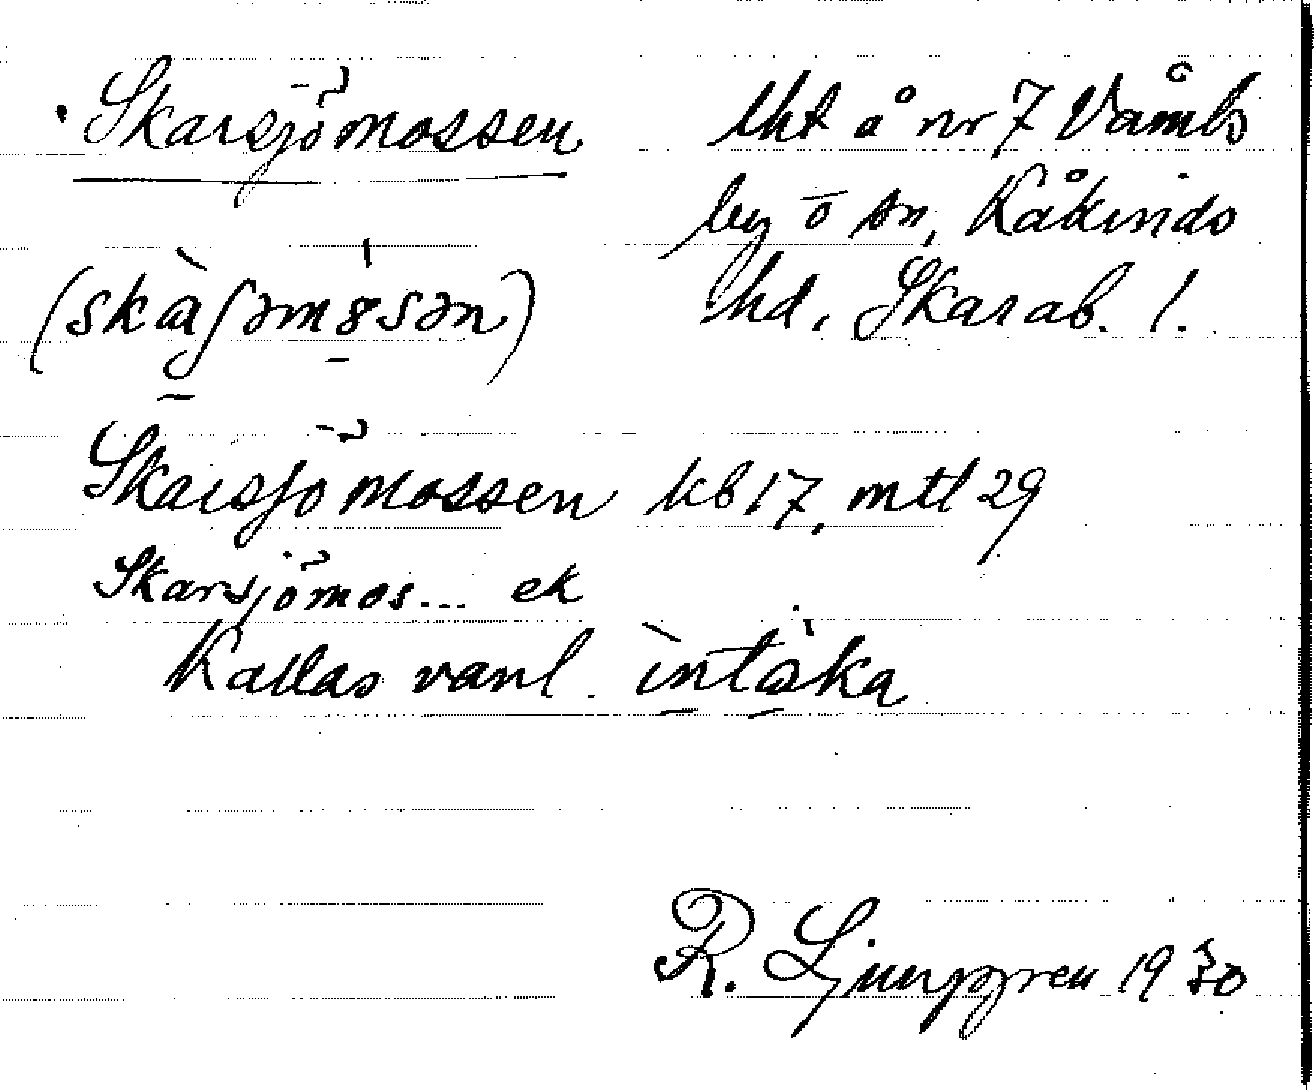 Skarsjömossen
lht å nr 7 Våmbs
by o sn, Kåkinds
hd, Skarab. l.
(skàʃəmɵsən)
Skarsjömossen kb 17, mtl 29
Skarsjömos... ek
Kallas vanl. ìntàka
R. Ljunggren 1930